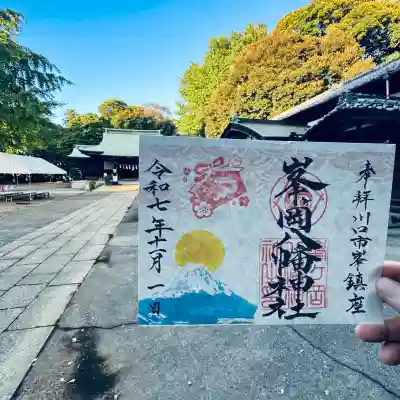 奉拝川口市峯鎮座
峯岡八幡神社
令和七年十一月一日